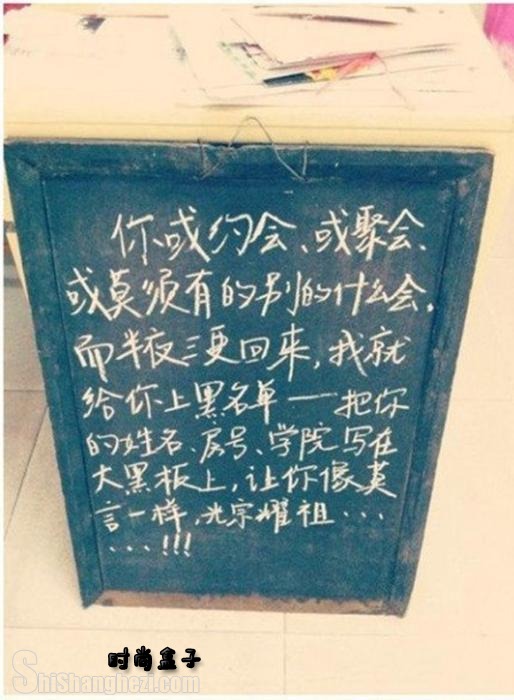 你或约会、或聚会、
或莫须有的别的什么会，
而半夜三更回来，我就
给你上黑名单——把你
的姓名、房号、学院写在
大黑板上，让你像英
言一样，光宗耀祖...
...!!!
时尚盒子
ShiShanghezi.com